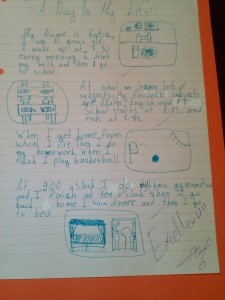 A Day In My Life
My name is
I am years old.
I wake up at 7.30
every morning. I drink
my milk and then I go
to school.
At school we learn lots of
subjects. My favourite subjects
are Maths, English and
School starts at 8.15 and
ends at 1.
When I get home from
school I eat then I do
my homework. When I
finish I play basketball.
At 9.00 o'clock I do gymnastics
and I finish at ten o'clock. When I go
back home I have dinner and then I go
to bed.
Excellent!!